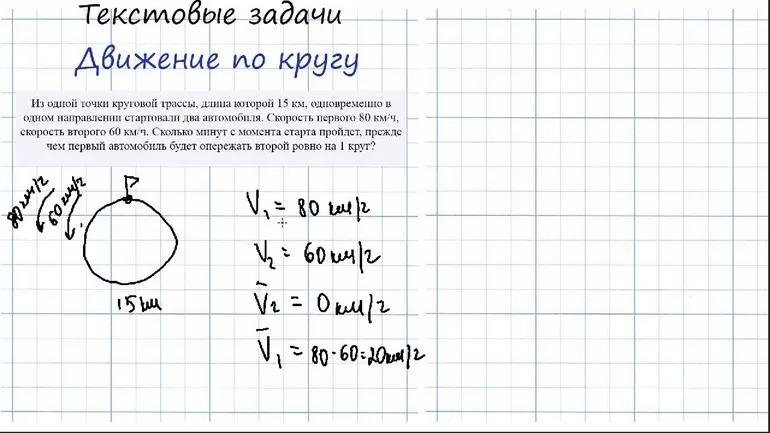 Текстовые задачи
Движение по кругу
Из одной точки круговой трассы, длина которой 15 км, одновременно в
одном направлении стартовали два автомобиля. Скорость первого 80 км/ч,
скорость второго 60 км/ч. Сколько минут с момента старта пройдет, прежде
чем первый автомобиль будет опережать второй ровно на 1 круг?
80 км/ч
60 км/ч
15 км
V₁ = 80 км/ч
V₂ = 60 км/ч
V̄₂ = 0 км/ч
V̄₁ = 80-60=20км/ч